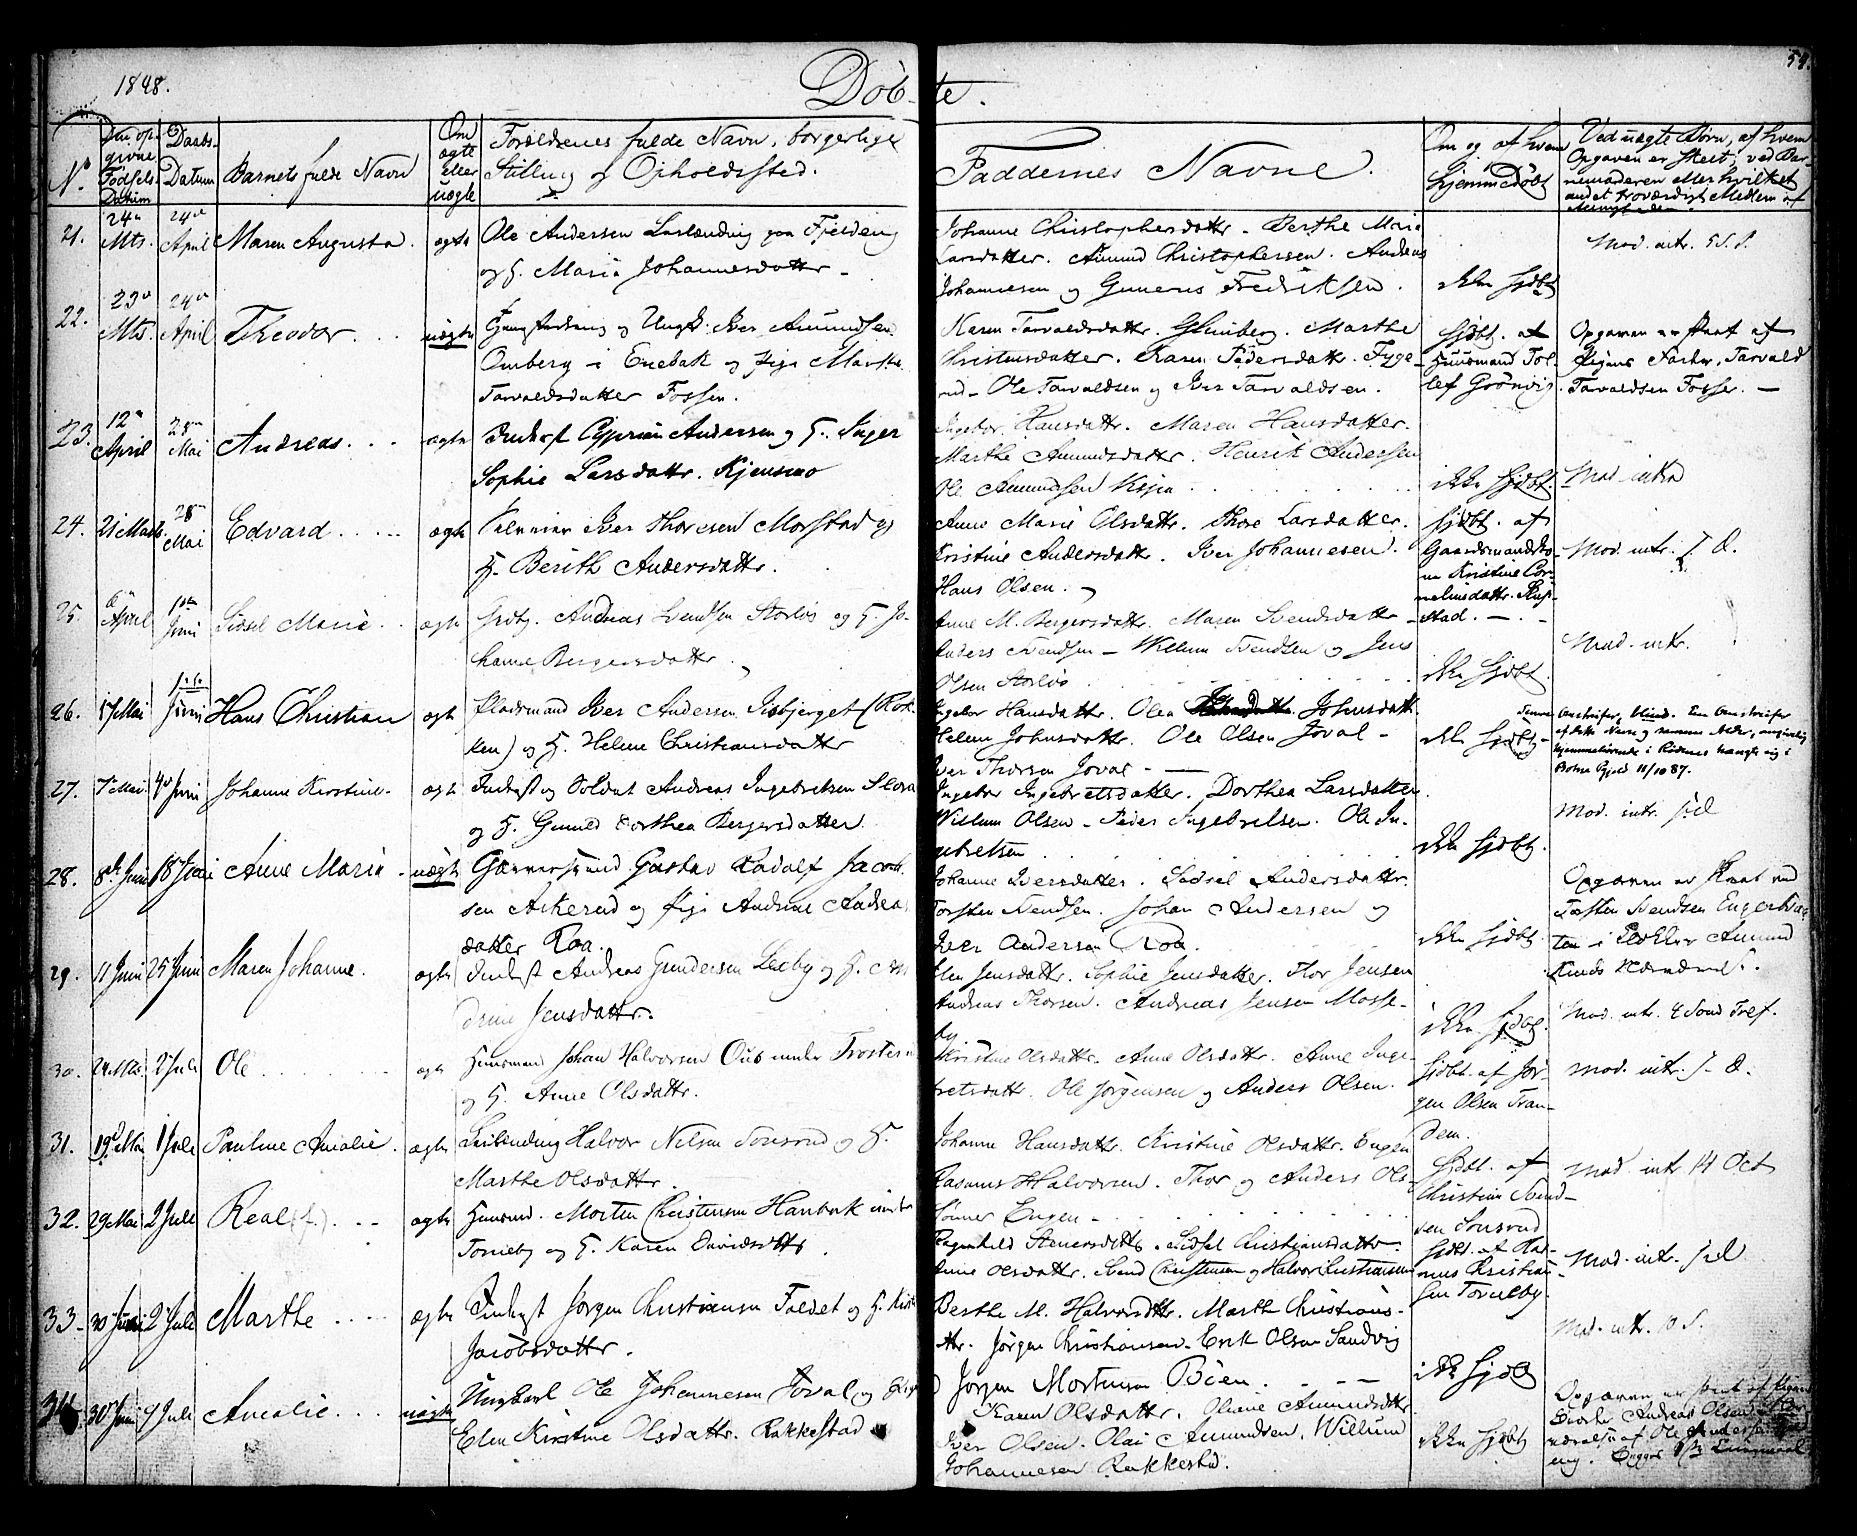 1848.
Døb-te.
54.
N.
Den opgivne Fødsels Datum
Daabs-Datum
Barnets fulde Navn
Om ægte eller uægte
Forældrenes fulde Navn, borgerlige
Stilling og Opholdssted.
Faddernes Navne.
Om og af hvem
hjemmedøbt
Ved uægte Børn, af hvem
Opgaven er skeet, ved Bar-
nemoderen eller hvilket
andet troværdigt Medlem af
Menigheden.
21. 24de Mts. 24de April Maren Augusta. ægte Ole Andersen
og H. Maria Johannesdatter
Johanne Christophersdattr. Berthe Marie
Larsdatter. Amund Christophersen. Andreas
Johannesen og Gunerus Fredriksen.
ikke hjdbt
Mod. intr.
22. 23de Mts. 24de April Theodor uægte og Ungk. Iver Amundsen
Omberg i Enebak og Pige Marthe
Tarvaldsdatter Fossen.
Karen Tarvaldsdattr. Glimberg. Marthe
Christensdatter. Karen Pedersdattr. Tyge-
rud. Ole Tarvaldsen og Iver Tarvaldsen.
hjdbt. af
Huusmand Tol-
lef Grönvig
Opgaven er skeet af
Pigens Fader, Tarvald
Tarvaldsen Fosser.
23. 12te April 28de Mai Andreas ægte Inderst Cyprian Andersen og H. Inger
Sophie Larsdattr. Kjensmo
Ingebor Hansdattr. Maren Hansdatter.
Marthe Amundsdattr. Henrik Andersen
Ole Amundsen
ikke hjdbt.
Mod. intra
24. 21 Marts. 28de Mai Edvard ægte Selveier Iver Thoresen Morstad og
H. Berith Andersdattr.
Anne Marie Olsdattr. Thore Larsdatter.
Kristine Andersdattr. Iver Johannesen.
Hans Olsen.
hjdbt. af
Gaardmandsko-
ne Kristine Cor-
neliusdattr.
stad.
Mod. intr. I. D.
25. 6te April 1ste Juni Sidsel Marie ægte Grdbr. Andreas Svendsen Storløs og H. Jo-
hanne Bergersdattr.
Anne M. Bergersdattr. Maren Svendsdattr
Anders Svendsen - Willum Svendsen og Jens
Olsen Storløs
ikke hjdbt.
Mod. intr.
26. 17 Mai 1ste Juni Hans Christian ægte Pladsmand Iver Andersen Isbjerget (Kok-
ken) og H. Helene Christiansdatter
Ingebor Hansdattr. Olea Johnsdattr.
Helene Johnsdattr. Ole Olsen Joval
Iver Thorsen Joval
ikke hjdbt
27. 7 Mai 4de Juni Johanne Kirstine. ægte Inderst og Soldat Andreas Ingebretsen Slora
og H. Gunild Dorthea Bergersdatter
Ingebor Ingebretsdatter. Dorthea Larsdatter
Willum Olsen - Peder Ingebretsen. Ole In-
gebretsen
ikke hjdbt.
Mod. intr.
28. 8de Juni 18 Juni Anne Marie uægte Garversvend Gustav Radolf Jacob-
sen Askerud og Pige Andrine Andreas
datter Roa.
Johanne Iversdatter. Sidsel Andersdattr.
Torsten Svendsen. Johan Andersen og
Iver Andersen Roa
ikke hjdbt.
Opgaven er skeet ved
Torsten Svendsen
29. 11 Juni 25 Juni Maren Johanne. ægte Inderst Andreas Gundersen Leeby og H. An-
drine Jensdattr.
Elen Jensdattr. Sophie Jensdatter. Thor Jensen
Andreas Thorsen. Andreas Jensen Mosse-
by
ikke hjdbt.
Mod. intr. 4 Sønd Tref.
30. 24 Mts. 2 Juli Ole ægte Huusmand Johan Halvorsen Ous under
og H. Anne Olsdattr.
Kristine Olsdattr. Anne Olsdattr. Anne Inge-
bretsdattr. Ole Jörgensen og Anders Olsen.
hjdbt. af Jör-
gen Olsen Tran-
dem.
Mod. intr. I. D.
31. 19de Mai 1 Juli Pauline Amalie. ægte Halvor Nilsen Sonsrud og H.
Marthe Olsdattr.
Johanne Hansdattr. Kristine Olsdattr. Engen
Rasmus Halvorsen. Thor og Anders Ols-
Sönner Engen
hjdbt. af
Christian Svend-
sen Sonsrud
Mod. intr 14 Oct
32. 29 Mai 2 Juli Real (f.) ægte Huusmd. Morten Christensen under
Torneby og H. Karen Davidsdttr.
Ragnhild Stenersdttr. Sidsel Christiansdattr.
Anne Olsdattr. Svend Christensen og Halvor Christiansen
hjdbt. af Ras-
mus Kristian-
sen Torneby.
Mod. intr.
33. 30 Juni 2 Juli Marthe ægte Inderst Jörgen Christiansen Faldet og H.
Jacobsdattr.
Berthe M. Halvorsdttr. Marthe Christians-
dttr. Jörgen Christiansen. Erik Olsen Sandvig
Jörgen Mortensen Böen.
ikke hjdbt
Mod. intr. 10 S.
34. 30 Juni 9 Juli Amalie uægte Ungkarl Ole Johannesen Joval og Pige
Elen Kirstine Olsdattr. Rakkestad
Karen Olsdattr. Oliane Amundsdttr
Iver Olsen. Olai Amundsen. Willum
Johannesen Rakkestd.
ikke hjdbt
Opgaven er skeet af Pigens
Broder Andreas Olsen